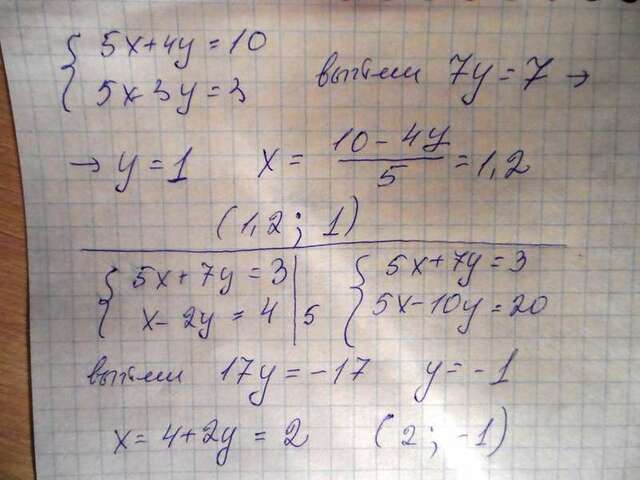 5x+4y=10
5x-3y=3
вычтем 7y=7 →
→ y=1 x= 10-4y/5 =1,2
(1,2; 1)
5x+7y=3
x-2y=4 | 5
5x+7y=3
5x-10y=20
вычтем 17y=-17 y=-1
x=4+2y=2 (2; -1)